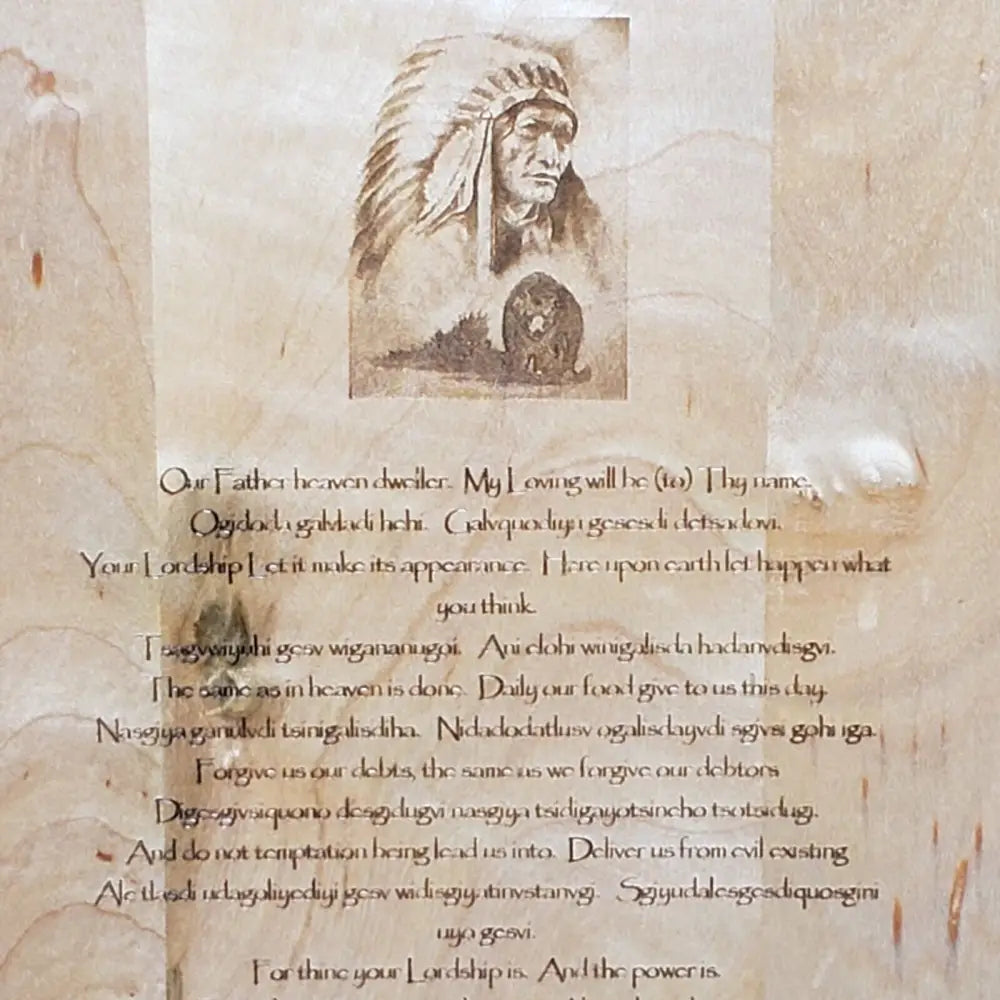 Our Father heaven dweller. My Loving will be (to) Thy name.
Ogidoda galvladi hehi. Galvquodiyu gesesdi detsadovi.
Your Lordship Let it make its appearance. Here upon earth let happen what
you think.
Tsagvwiyuhi gesv wigananugoi. Ani elohi winigalisda hadanvdisgvi.
The same as in heaven is done. Daily our food give to us this day.
Nasgiya galvladi tsinigalisdiha. Nidadodatlusv ogalisdayvdi sgivsi gohi iga.
Forgive us our debts, the same as we forgive our debtors
Digesgivsiquono desgidugvi nasgiya tsidigayotsineho tsotsidugi.
And do not temptation being lead us into. Deliver us from evil existing
Ale tlasdi udagoliyediyi gesv widisgiyatinvstanvgi. Sgiyudalesgesdiquosgini
uyo gesvi.
For thine your Lordship is. And the power is.